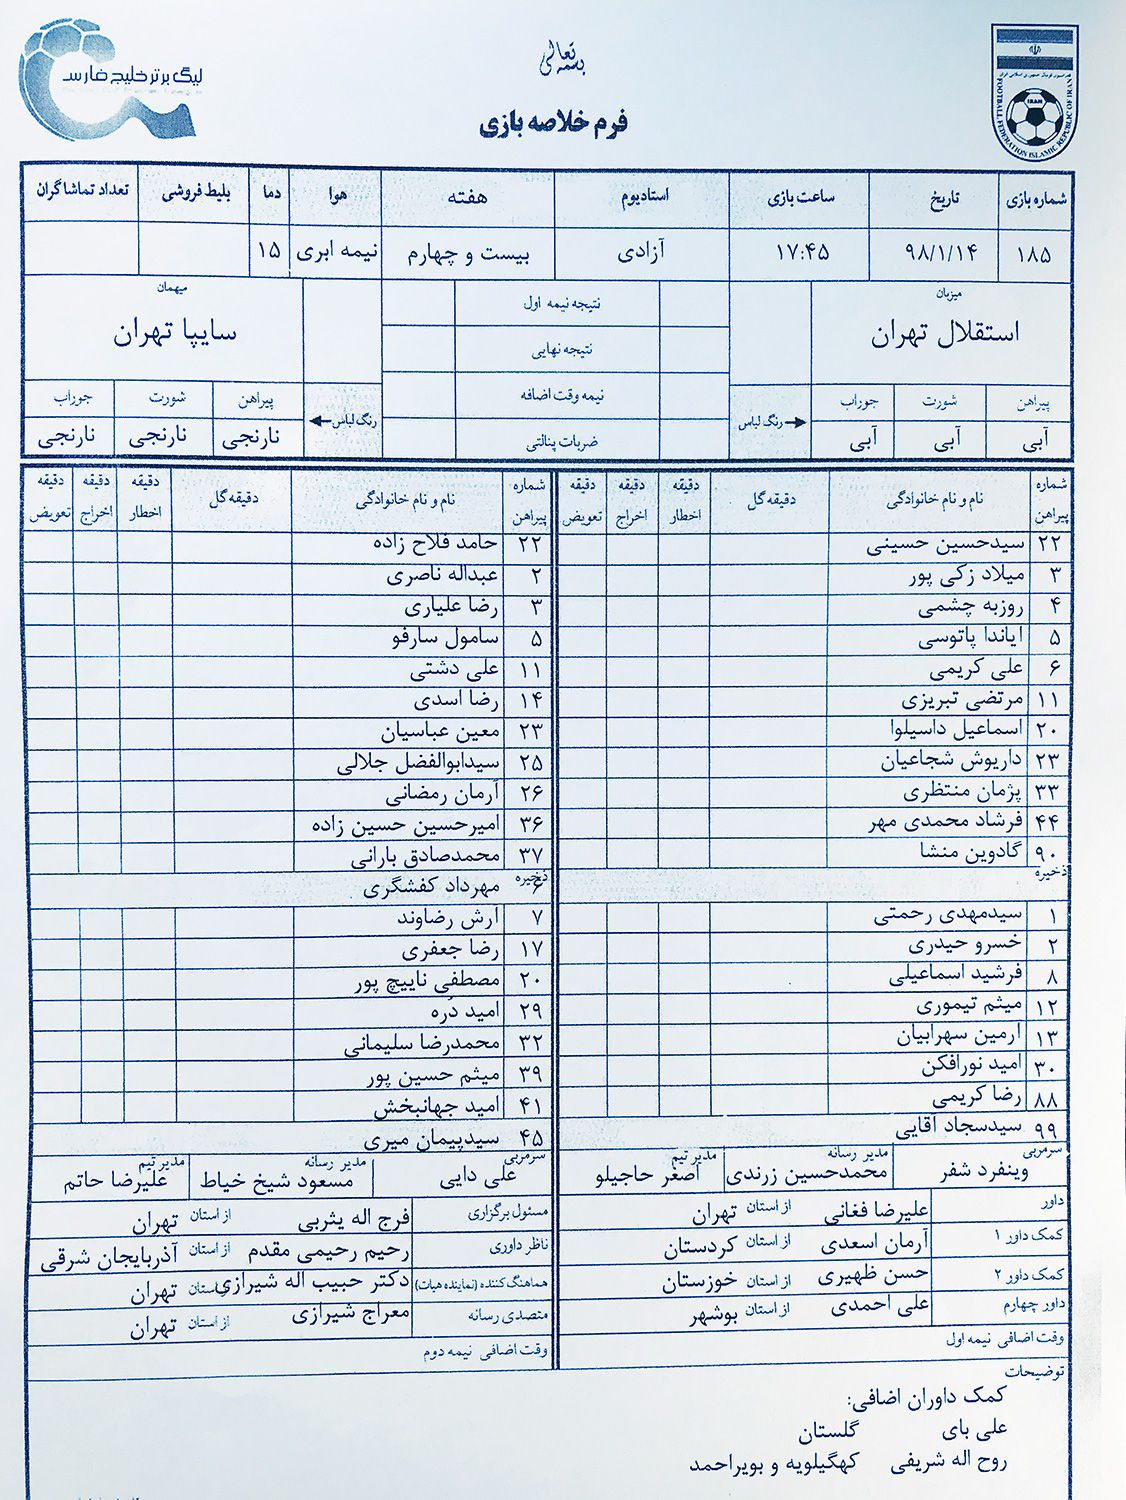 بسمه تعالی
لیگ برتر خلیج فارس
FOOTBALL FEDERATION ISLAMIC REPUBLIC OF IRAN
IRAN
فرم خلاصه بازی
شماره بازی تاریخ ساعت بازی استادیوم هفته هوا دما بلیط فروشی تعداد تماشاگران
۱۸۵ ۹۸/۱/۱۴ ۱۷:۴۵ آزادی بیست و چهارم نیمه ابری ۱۵
میزبان نتیجه نیمه اول میهمان
استقلال تهران نتیجه نهایی سایپا تهران
پیراهن شورت جوراب رنگ لباس نیمه وقت اضافه رنگ لباس پیراهن شورت جوراب
آبی آبی آبی ضربات پنالتی نارنجی نارنجی نارنجی
شماره پیراهن نام و نام خانوادگی دقیقه گل دقیقه اخطار دقیقه اخراج دقیقه تعویض
۲۲ سیدحسین حسینی
۳ میلاد زکی پور
۴ روزبه چشمی
۵ ایاندا پاتوسی
۶ علی کریمی
۱۱ مرتضی تبریزی
۲۰ اسماعیل داسیلوا
۲۳ داریوش شجاعیان
۳۳ پژمان منتظری
۴۴ فرشاد محمدی مهر
۹۰ گادوین منشا
ذخیره
۱ سیدمهدی رحمتی
۲ خسرو حیدری
۸ فرشید اسماعیلی
۱۲ میثم تیموری
۱۳ آرمین سهرابیان
۳۰ امید نورافکن
۸۸ رضا کریمی
۹۹ سیدسجاد آقایی
سرمربی وینفرد شفر مدیر رسانه محمدحسین زرندی مدیر تیم اصغر حاجیلو
داور علیرضا فغانی از استان تهران
کمک داور ۱ آرمان اسعدی از استان کردستان
کمک داور ۲ حسن ظهیری از استان خوزستان
داور چهارم علی احمدی از استان بوشهر
وقت اضافی نیمه اول
شماره پیراهن نام و نام خانوادگی دقیقه گل دقیقه اخطار دقیقه اخراج دقیقه تعویض
۲۲ حامد فلاح زاده
۲ عبداله ناصری
۳ رضا علیاری
۵ سامول سارفو
۱۱ علی دشتی
۱۴ رضا اسدی
۲۳ معین عباسیان
۲۵ سیدابوالفضل جلالی
۲۶ آرمان رمضانی
۳۶ امیرحسین حسین زاده
۳۷ محمدصادق بارانی
ذخیره
۶ مهرداد کفشگری
۷ آرش رضاوند
۱۷ رضا جعفری
۲۰ مصطفی ناییج پور
۲۹ امید دُره
۳۲ محمدرضا سلیمانی
۳۹ میثم حسین پور
۴۱ امید جهانبخش
۴۵ سیدپیمان میری
سرمربی علی دایی مدیر رسانه مسعود شیخ خیاط مدیر تیم علیرضا حاتم
مسئول برگزاری فرج اله یثربی از استان تهران
ناظر داوری رحیم رحیمی مقدم از استان آذربایجان شرقی
هماهنگ کننده (نماینده هیات) دکتر حبیب اله شیرازی از استان تهران
متصدی رسانه معراج شیرازی از استان تهران
وقت اضافی نیمه دوم
توضیحات
کمک داوران اضافی:
علی بای گلستان
روح اله شریفی کهگیلویه و بویراحمد